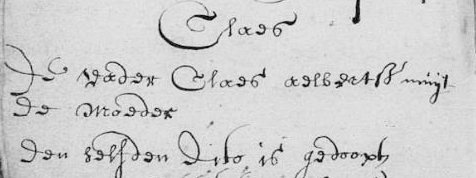 Claes
De vader Claes aelbertsz muijt
de Moeder
den selfden dito is gedoopt